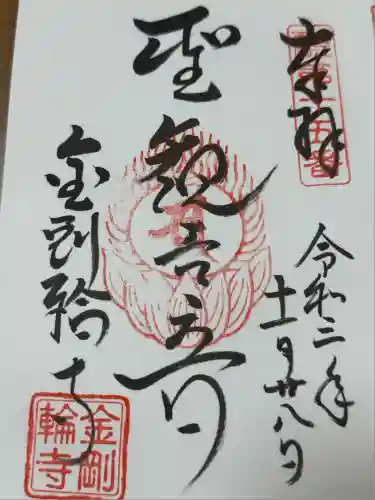 奉拝
令和二年
十一月廿八日
聖観世音
金剛輪寺
金剛
輪寺